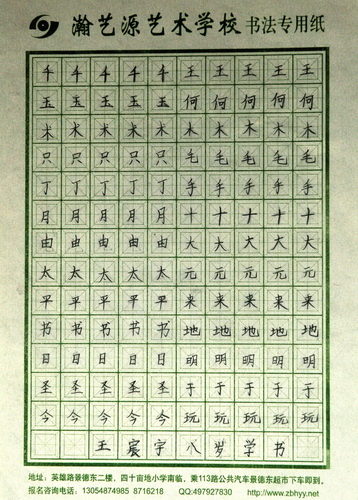 瀚艺源艺术学校 书法专用纸
千千千千千王王王王王
玉玉玉玉玉何何何何何
术术术术术木木木木木
只只只只只毛毛毛毛毛
丁丁丁丁丁手手手手手
月月月月月十十十十十
由由由由由大大大大大
太太太太太元元元元元
平平平平平来来来来来
书书书书书地地地地地
日日日日日明明明明明
圣圣圣圣圣于于于于于
今今今今今玩玩玩玩玩
王宸宇八岁学书
地址：英雄路景德东二楼，四十亩地小学南临，乘113路公共汽车景德东超市下车即到。
报名咨询电话：13054874985 8716218 QQ:497927830 http://www.zbhyy.net